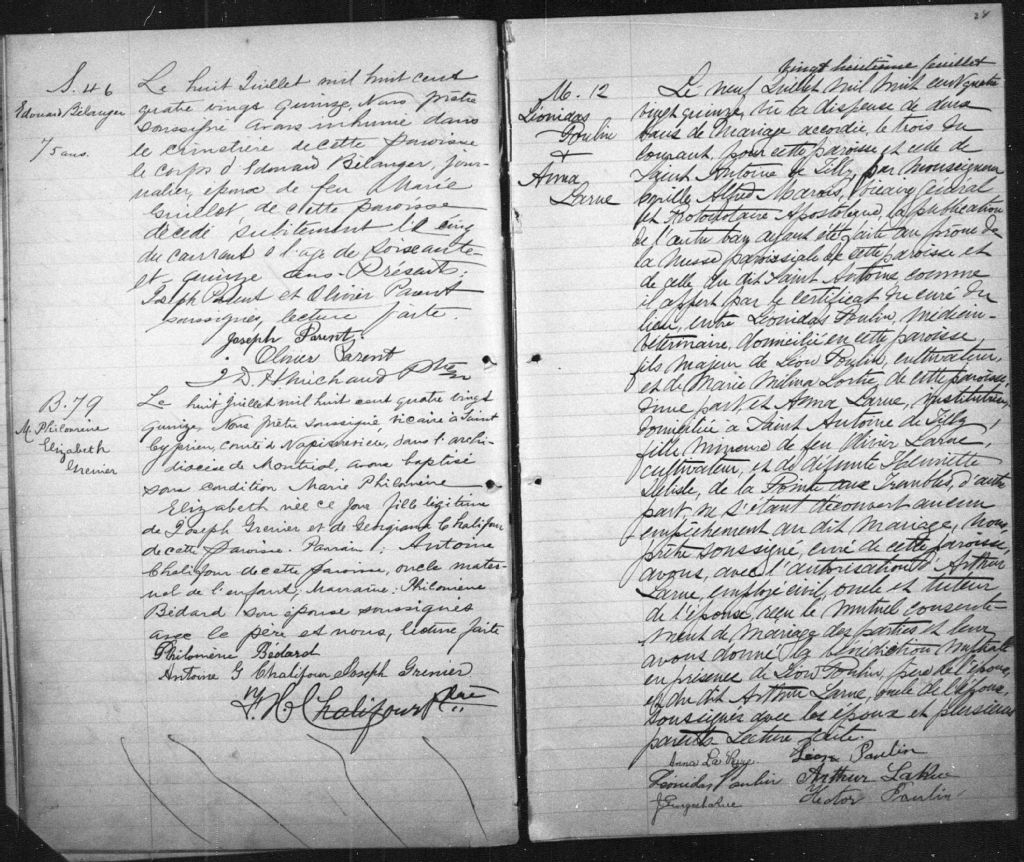 S. 46
Edouard Bélanger
75 ans.
Le huit Juillet mil huit cent
quatre vingt quinze, Nous prêtre
soussigné avons inhumé dans
le cimetière de cette paroisse
le corps d'Edouard Bélanger, jour-
nalier, époux de feu Marie
Guillet, de cette paroisse
décédé subitement le cinq
du courrant à l'age de soixante
et quinze ans. Présents:
Joseph Parent et Olivier Parent
soussignés, lecture faite.
Joseph Parent.
Olivier Parent
Michaud Ptre
B. 79
M. Philomène
Elizabeth
Grenier
Le huit Juillet mil huit cent quatre vingt
quinze, Nous prêtre soussigné, vicaire à Saint
Cyprien, comté de Napierreville, dans l'archi-
diocèse de Montréal, avons baptisé
sous condition Marie Philomène
Elizabeth née ce jour fille légitime
de Joseph Grenier et de Georgiana Chalifour
de cette paroisse. Parrain: Antoine
Chalifour de cette paroisse, oncle mater-
nel de l'enfant, Marraine: Philomène
Bédard son épouse soussignés
avec le père et nous, lecture faite
Philomène Bédard
Antoine G Chalifour Joseph Grenier
Chalifour Ptre
24
vingt huitième feuillet
M. 12
Léonidas
Poulin
&
Anna
Larue
Le neuf Juillet mil huit cent quatre
vingt quinze, vu la dispense de deux
bans de mariage accordée, le trois du
courant, pour cette paroisse et celle de
Saint Antoine de Tilly, par Monseigneur
Cyrille Alfred Marois, Vicaire Général
et Protonotaire Apostolique, la publication
de l'autre ban ayant été faite au prône de
la Messe paroissiale de cette paroisse et
de celle du dit Saint Antoine comme
il appert par le certificat du curé du
lieu, entre Léonidas Poulin, médecin-
vétérinaire, domicilié en cette paroisse
fils majeur de Léon Poulin, cultivateur,
et de Marie Melina Lortie, de cette paroisse,
d'une part, et Anna Larue, institutrice,
domiciliée à Saint Antoine de Tilly
fille mineure de feu Olivier Larue,
cultivateur, et de défunte Henriette
Delisle, de la Pointe aux Trembles, d'autre
part, ne s'étant découvert aucun
empêchement au dit mariage, nous
prêtre soussigné, curé de cette paroisse,
avons, avec l'autorisation d'Arthur
Larue, employé civil, oncle et tuteur
de l'épouse, reçu le mutuel consente-
ment de mariage des parties et leur
avons donné la bénédiction nuptiale
en présence de Léon Poulin, père de l'époux,
et du dit Arthur Larue, oncle de l'épouse,
soussignés avec les époux et plusieurs
parents Lecture faite.
Anna La Rue. Léon Poulin
Léonidas Poulin Arthur LaRue
LaRue Hector Poulin